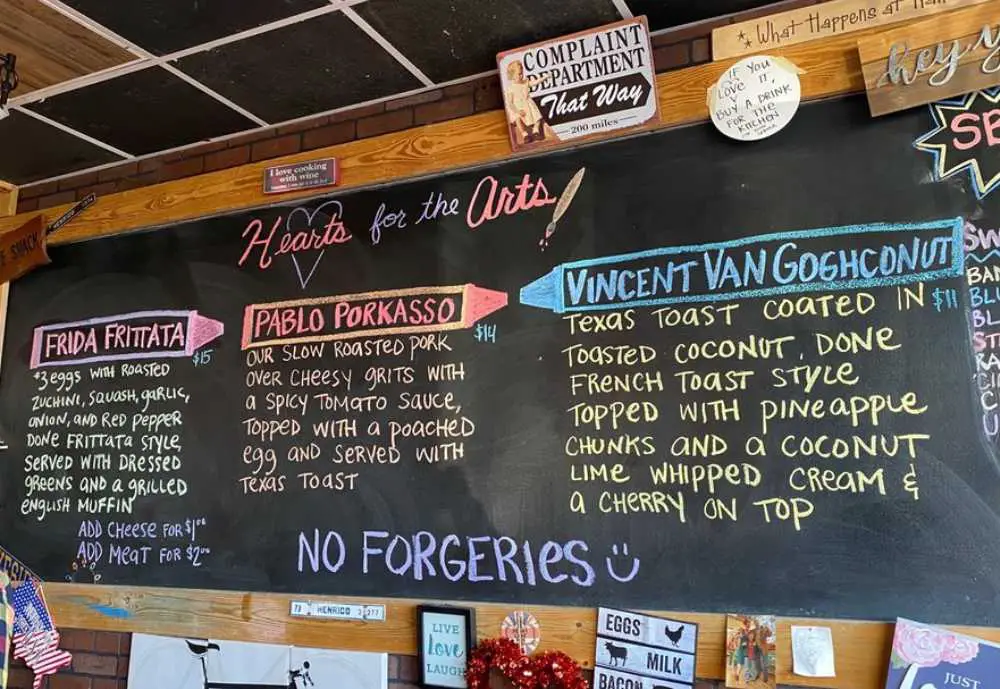 What Happens at
COMPLAINT
DEPARTMENT
That Way
200 miles
IF YOU
LOVE IT,
BUY A DRINK
FOR THE
KITCHEN
hey y
SE
I love cooking
with wine
SHACK
Hearts for the Arts
FRIDA FRITTATA
$15
*3 eggs with roasted
zuchini, squash, garlic,
onion, and red pepper
done frittata style,
served with dressed
greens and a grilled
english muffin
ADD Cheese FOR $1.00
ADD Meat FOR $2.00
PABLO PORKASSO
$14
our slow roasted pork
over cheesy grits with
a spicy tomato sauce,
topped with a poached
egg and served with
Texas Toast
VINCENT VAN GOGHCONUT
$11
Texas Toast coated in
toasted coconut, done
french toast style
topped with pineapple
chunks and a coconut
lime whipped cream &
a cherry on top
NO FORGERIES
HENRICO
LIVE
love
LAUGH
EGGS
MILK
BACON
JUST